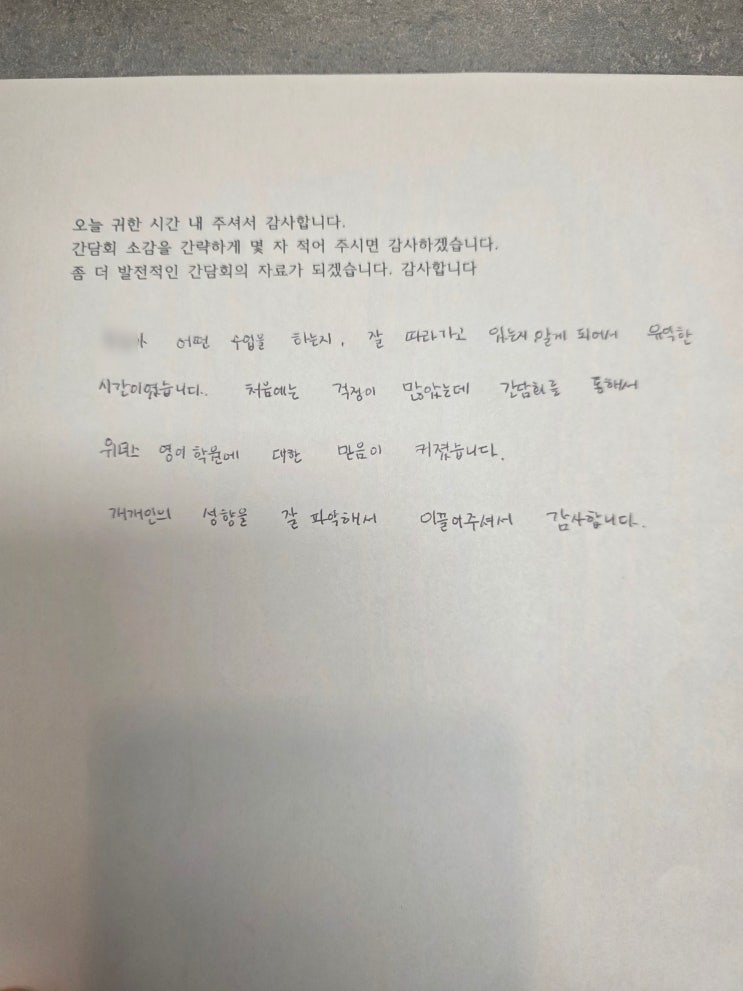 오늘 귀한 시간 내 주셔서 감사합니다.
간담회 소감을 간략하게 몇 자 적어 주시면 감사하겠습니다.
좀 더 발전적인 간담회의 자료가 되겠습니다. 감사합니다
어떤 수업을 하는지, 잘 따라가고 있는지 알게 되어서 유익한
시간이였습니다. 처음에는 걱정이 많았는데 간담회를 통해서
위너스 영어학원에 대한 믿음이 커졌습니다.
개개인의 성향을 잘 파악해서 이끌어주셔서 감사합니다.